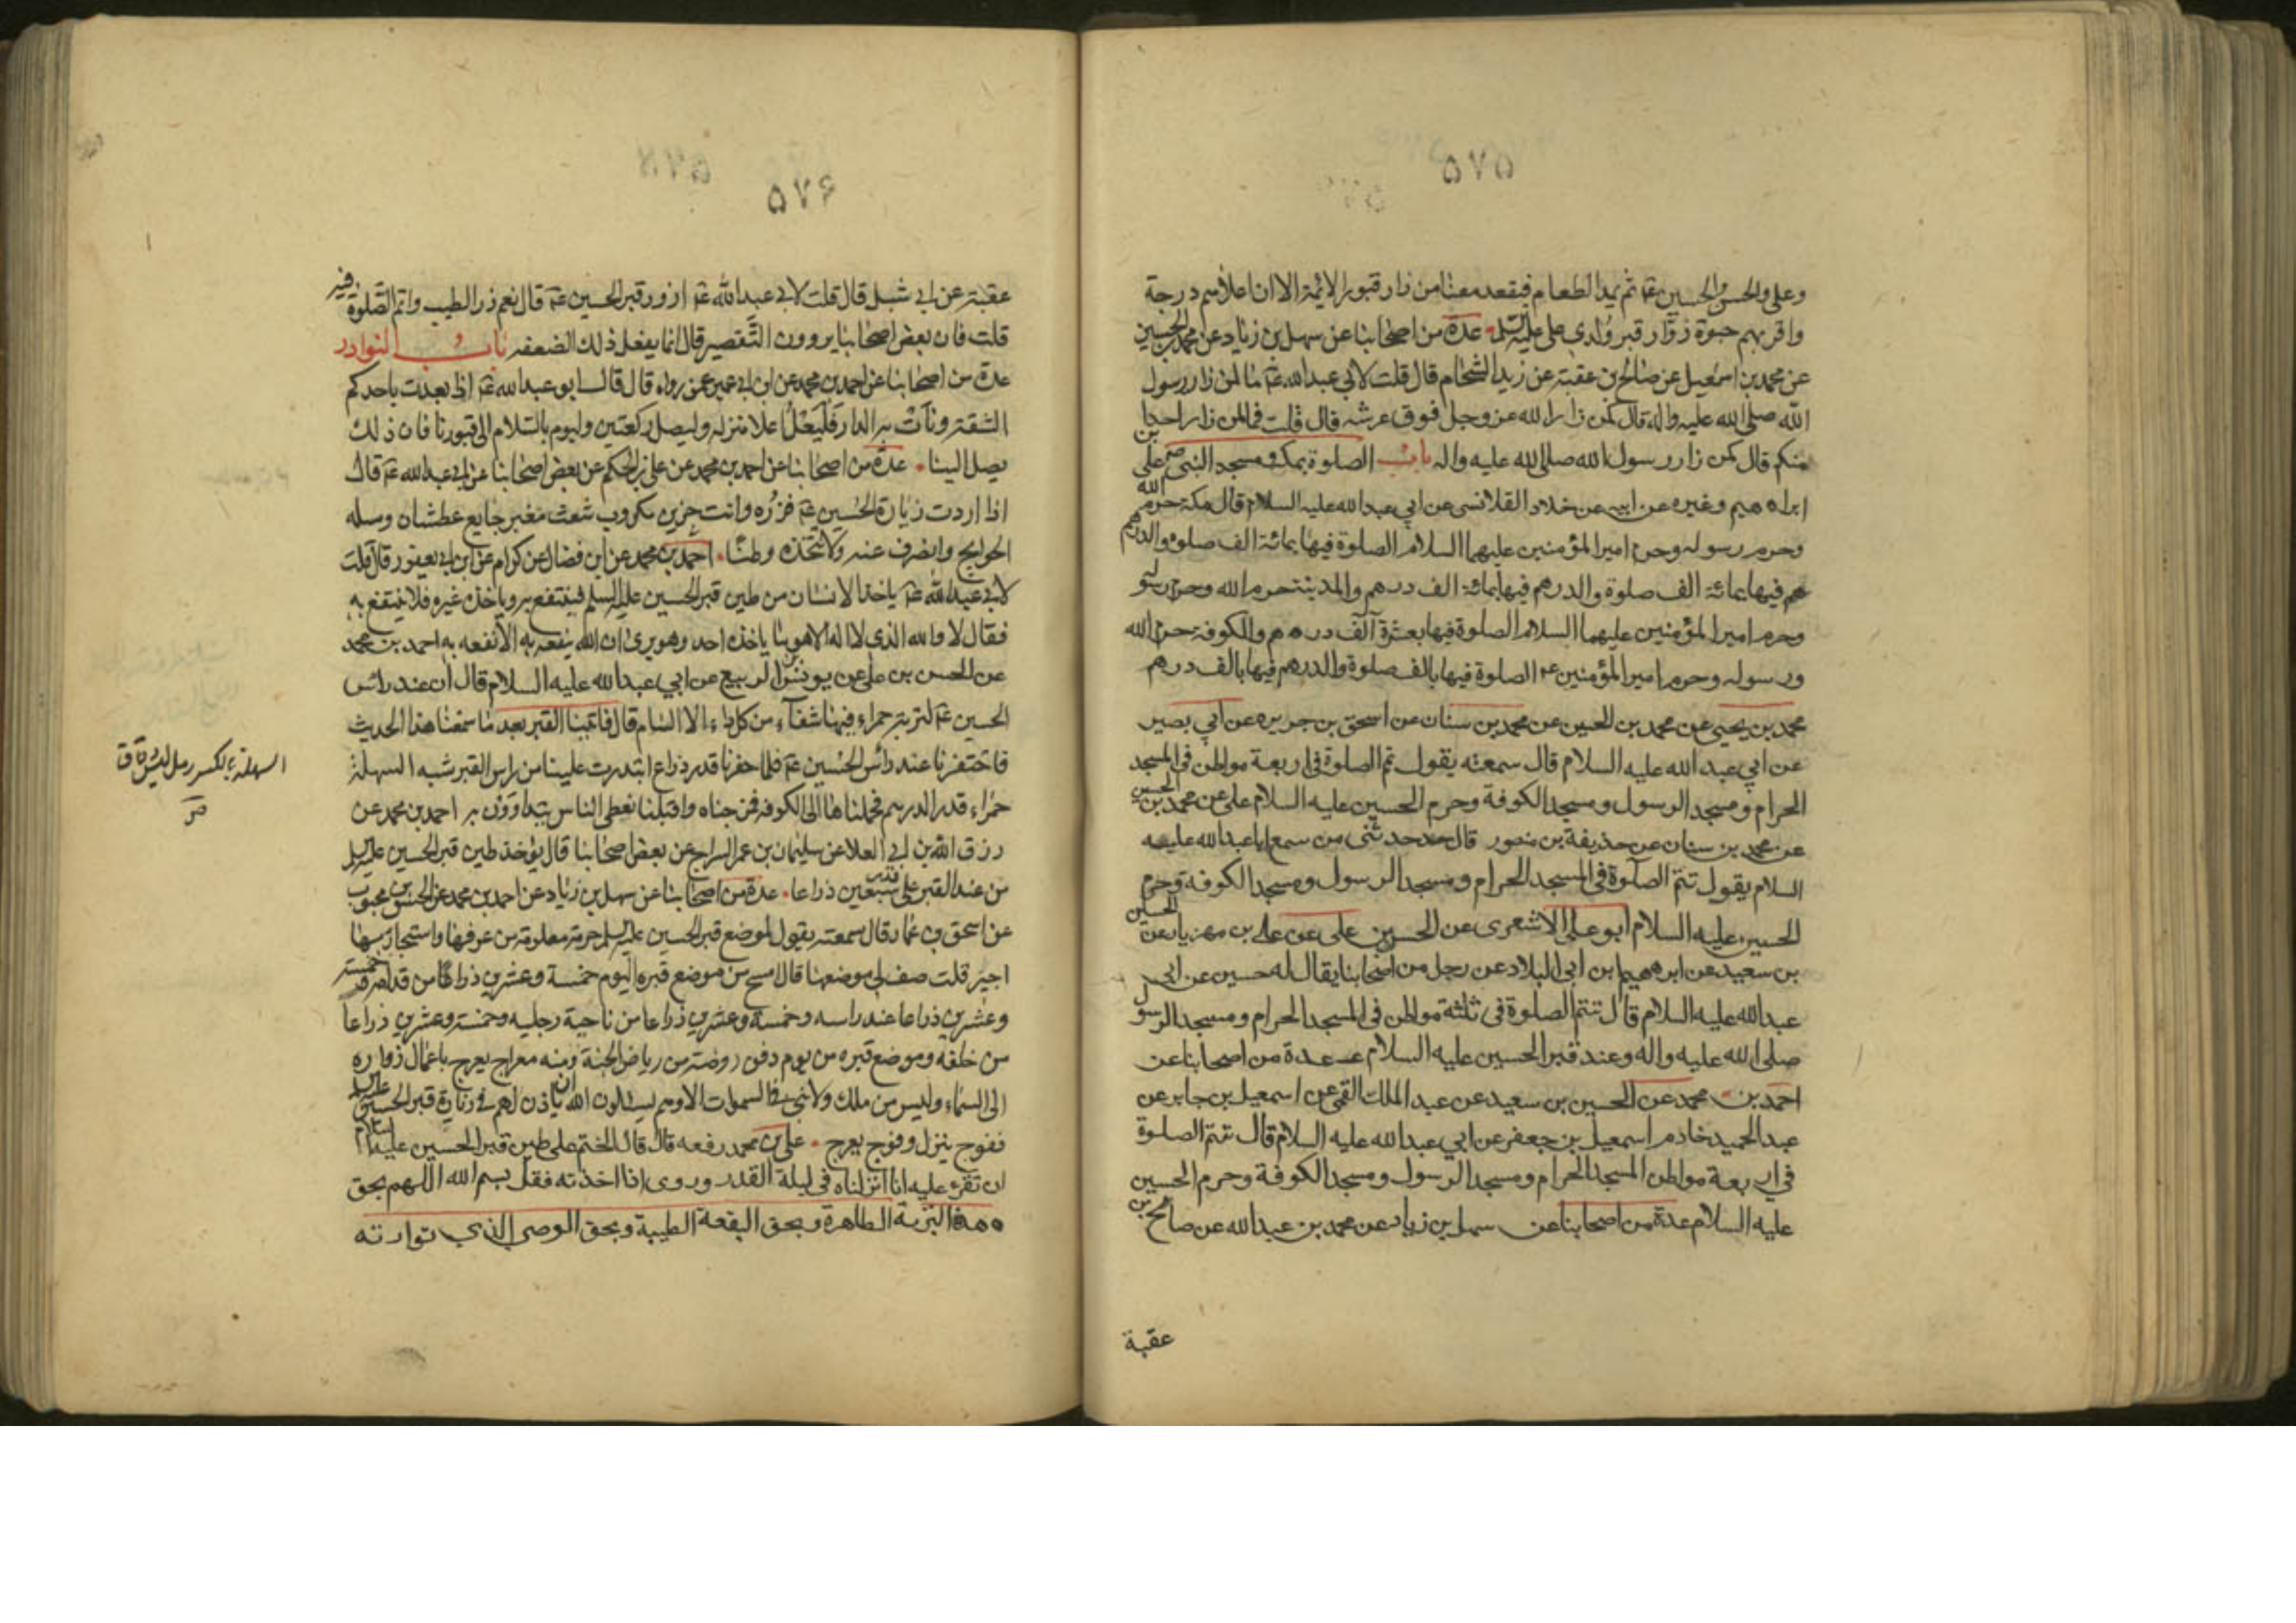 ٥٧٥
وعلى والحسن والحسين عم ثم يمد الطعام فيقعد معنا من زار قبور الائمة الا ان اعلاهم درجة
واقربهم حبوة زوّار قبر ولدى على عليه السلم عدة من اصحابنا عن سهل بن زياد عن محمد بن الحسين
عن محمد بن اسمعيل عن صالح بن عقبة عن زيد الشحام قال قلت لابي عبد الله عم ما لمن زار رسول
الله صلى الله عليه واله قال كمن زار الله عز وجل فوق عرشه قال قلت فما لمن زار احدا
منكم قال كمن زار رسول الله صلى الله عليه واله باب الصلوة بمكة ومسجد النبى صم على بن
ابراهيم وغيره عن ابيه عن خلاد القلانسى عن ابي عبد الله عليه السلام قال مكة حرم الله
وحرم رسوله وحرم امير المؤمنين عليهما السلام الصلوة فيها بمائة الف صلوة والدرهم
فيها بمائة الف صلوة والدرهم فيها بمائة الف درهم والمدينة حرم الله وحرم رسو
وحرم امير المؤمنين عليهما السلام الصلوة فيها بعشرة آلف درهم والكوفة حرم الله
ورسوله وحرم امير المؤمنين عم الصلوة فيها بالف صلوة والدرهم فيها بالف درهم
محمد بن يحيى عن محمد بن الحسين عن محمد بن سنان عن اسحق بن جريره عن ابي بصير
عن ابي عبد الله عليه السلام قال سمعته يقول تم الصلوة فى اربعة مواطن فى المسجد
الحرام ومسجد الرسول ومسجد الكوفة وحرم الحسين عليه السلام على عن محمد بن الحسين
عن محمد بن سنان عن حذيفة بن منصور قال حدثنى من سمع ابا عبد الله عليه
السلام يقول تتم الصلوة فى المسجد الحرام ومسجد الرسول ومسجد الكوفة وحرم
الحسين عليه السلام ابو على الاشعرى عن الحسن بن على عن على بن مهزيار عن الحسين
بن سعيد عن ابرهيم ابن ابى البلاد عن رجل من اصحابنا يقال له حسين عن ابى
عبد الله عليه السلام قال تتم الصلوة فى ثلثة مواطن فى المسجد الحرام ومسجد الرسول
صلى الله عليه واله وعند قبر الحسين عليه السلام عدة من اصحابنا عن
احمد بن محمد عن الحسين بن سعيد عن عبد الملك القمى عن اسمعيل بن جابر عن
عبد الحميد خادم اسمعيل بن جعفر عن ابي عبد الله عليه السلام قال تتم الصلوة
في اربعة مواطن المسجد الحرام ومسجد الرسول ومسجد الكوفة وحرم الحسين
عليه السلام عدة من اصحابنا عن سهل بن زياد عن محمد بن عبد الله عن صالح بن
عقبة
٥٧۶
عقبة عن ابى شبل قال قلت لابى عبد الله عم ازور قبر الحسين عم قال نعم زر الطيب واتم الصلوة فيه
قلت فان بعض اصحابنا يروون التقصير قال انما يفعل ذلك الضعفه باب النوادر
عدة من اصحابنا عن احمد بن محمد عن ابن ابى عمير عمن رواه قال قال ابو عبد الله عم اذا بعدت باحدكم
الشقة ونأت به الدار فليعل اعلا منزله وليصل ركعتين وليوم بالسلام الى قبورنا فان ذلك
يصل الينا عدة من اصحابنا عن احمد بن محمد عن على بن الحكم عن بعض اصحابنا عن ابى عبد الله عم قال
اذا اردت زيارة الحسين عم فزره وانت حزين مكروب شعث مغبر جايع عطشان وسله
الحوايج وانصرف عنه ولا تتخذه وطنا احمد بن محمد عن ابن فضال عن كرام عن ابن ابى يعفور قال قلت
لابى عبد الله عم ياخذ الانسان من طين قبر الحسين عليه السلم فينتفع به وياخذ غيره فلا ينتفع به
فقال لا والله الذى لا اله الا هو ما ياخذه احد وهو يرى ان الله ينفعه به الا نفعه به احمد بن محمد
عن الحسن بن على عن يونس بن الربيع عن ابي عبد الله عليه السلام قال ان عند راس
الحسين عم لتربة حمراء فيها شفاء من كل داء الا السام قال فاتينا القبر بعد ما سمعنا هذا الحديث
فاحتفرنا عند رأس الحسين عم فلما حفرنا قدر ذراع ابتدرت علينا من راس القبر شبه السهلة
حمراء قدر الدرهم فحملناها الى الكوفه فمزجناه واقبلنا نعطى الناس يتداوون به احمد بن محمد عن
رزق الله بن ابى العلا عن سليمان بن عمر السراج عن بعض اصحابنا قال يؤخذ طين قبر الحسين عليه السلم
من عند القبر على قدر سبعين ذراعا عدة من اصحابنا عن سهل بن زياد عن احمد بن محمد عن الحسن بن محبوب
عن اسحق بن عمار قال سمعته يقول لموضع قبر الحسين عليه السلم حرمة معلومة من عرفها واستجار بها
اجير قلت صف لي موضعها قال امسح من موضع قبره اليوم خمسة وعشرين ذراعا من قدامه وخمسة
وعشرين ذراعا عند راسه وخمسة وعشرين ذراعا من ناحية رجليه وخمسة وعشرين ذراعا
من خلفه وموضع قبره من يوم دفن روضة من رياض الجنة ومنه معراج يعرج باعمال زواره
الى السماء وليس من ملك ولا نبى فى السموات الا وهم يسئلون الله ان ياذن لهم فى زيارة قبر الحسين عليه السلم
ففوج ينزل وفوج يعرج على بن محمد رفعه قال قال الختم على طين قبر الحسين عليه السلام
ان تقرء عليه انا انزلناه فى ليلة القدر وروى اذا اخذته فقل بسم الله اللهم بحق
هذه التربة الطاهرة وبحق البقعة الطيبة وبحق الوصي الذي توارته
السهلة بالكسر رمل ليس